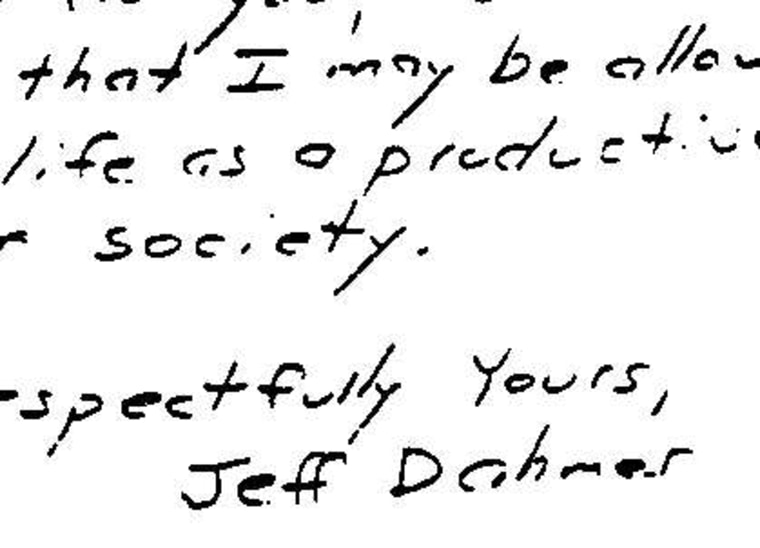 that I may be allow
life as a productiv
r society.
espectfully Yours,
Jeff Dahmer